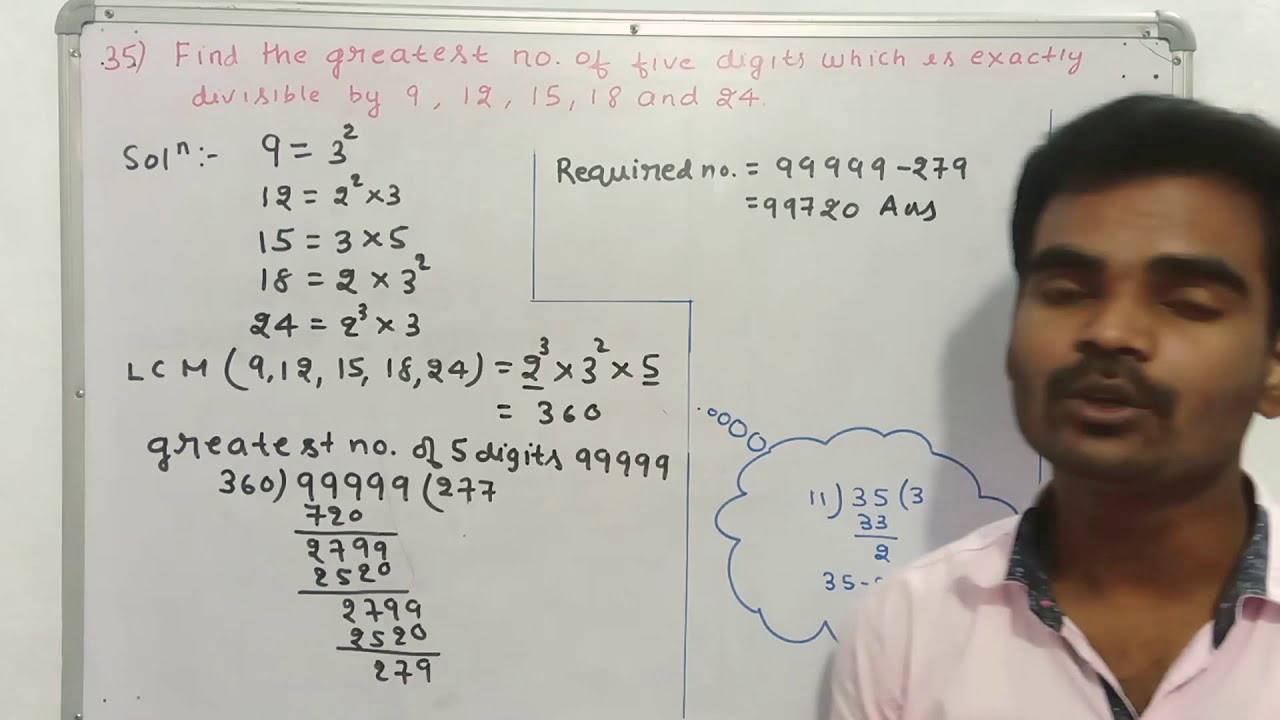 35) Find the greatest no. of five digits which is exactly
divisible by 9, 12, 15, 18 and 24.
Solⁿ:- 9 = 3²
12 = 2² × 3
15 = 3 × 5
18 = 2 × 3²
24 = 2³ × 3
LCM (9, 12, 15, 18, 24) = 2³ × 3² × 5
= 360
greatest no. of 5 digits 99999
360) 99999 (277
720
2799
2520
2799
2520
279
Required no. = 99999 - 279
= 99720 Ans
11) 35 (3
33
2
35-